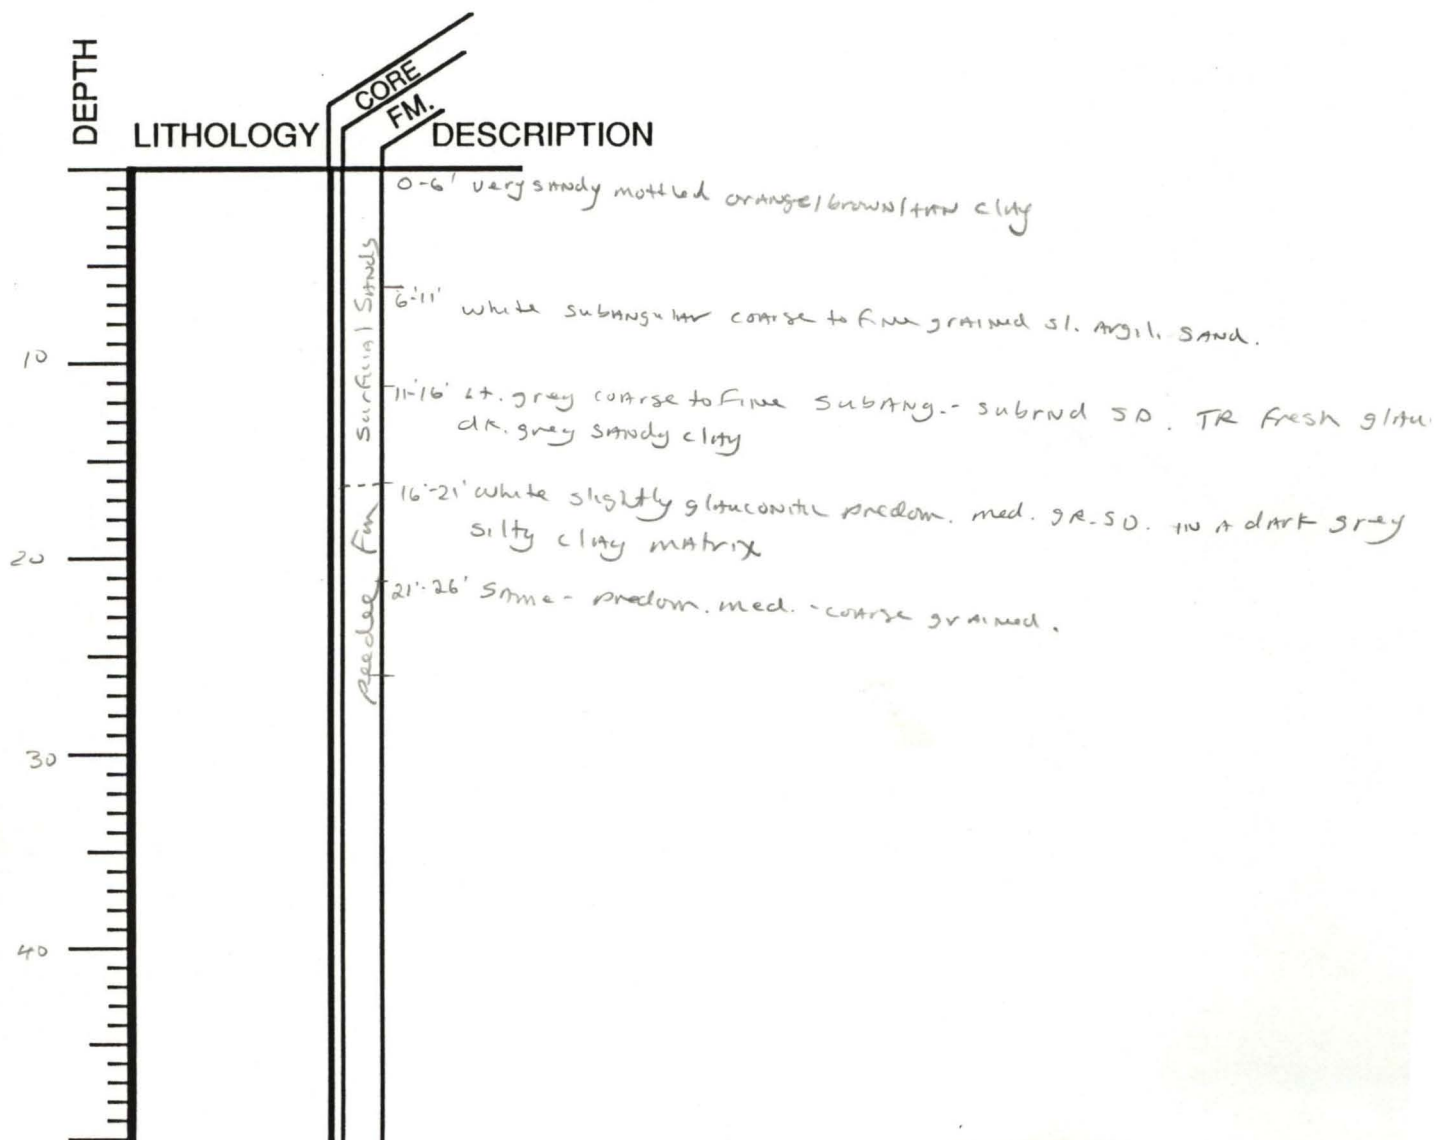 DEPTH
LITHOLOGY
CORE
FM.
DESCRIPTION
0-6' very sandy mottled orange/brown/tan clay
Surficial Sands
6-11' white subangular coarse to fine grained sl. Argil. SAND.
10
11-16' Lt. grey coarse to fine subang.- subrnd SD. TR fresh glau
dk. grey sandy clay
16'-21' white slightly glauconitic predom. med. gr. SD. in a dark grey
silty clay matrix
20
Peedee Fm
21'-26' Same - predom. med. - coarse grained.
30
40